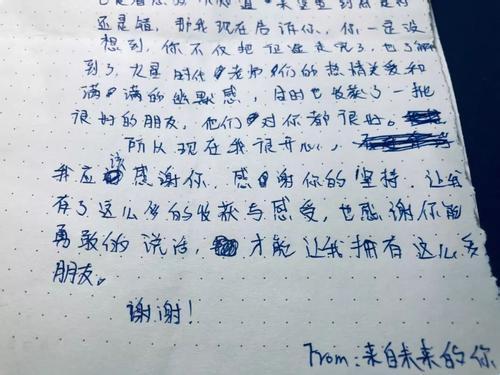 还是错，那我现在告诉你，你一定没
想到，你不仅把
到了，九星时代老师们的热情关爱和
满满的幽默感，同时也收获了一批
很好的朋友，他们对你都很好。
所以现在我很开心，
我应该感谢你，感谢你的坚持，让我
有了这么多的收获与感受，也感谢你能
勇敢的说话，才能让我拥有这么多
朋友。
谢谢！
From：来自未来的你